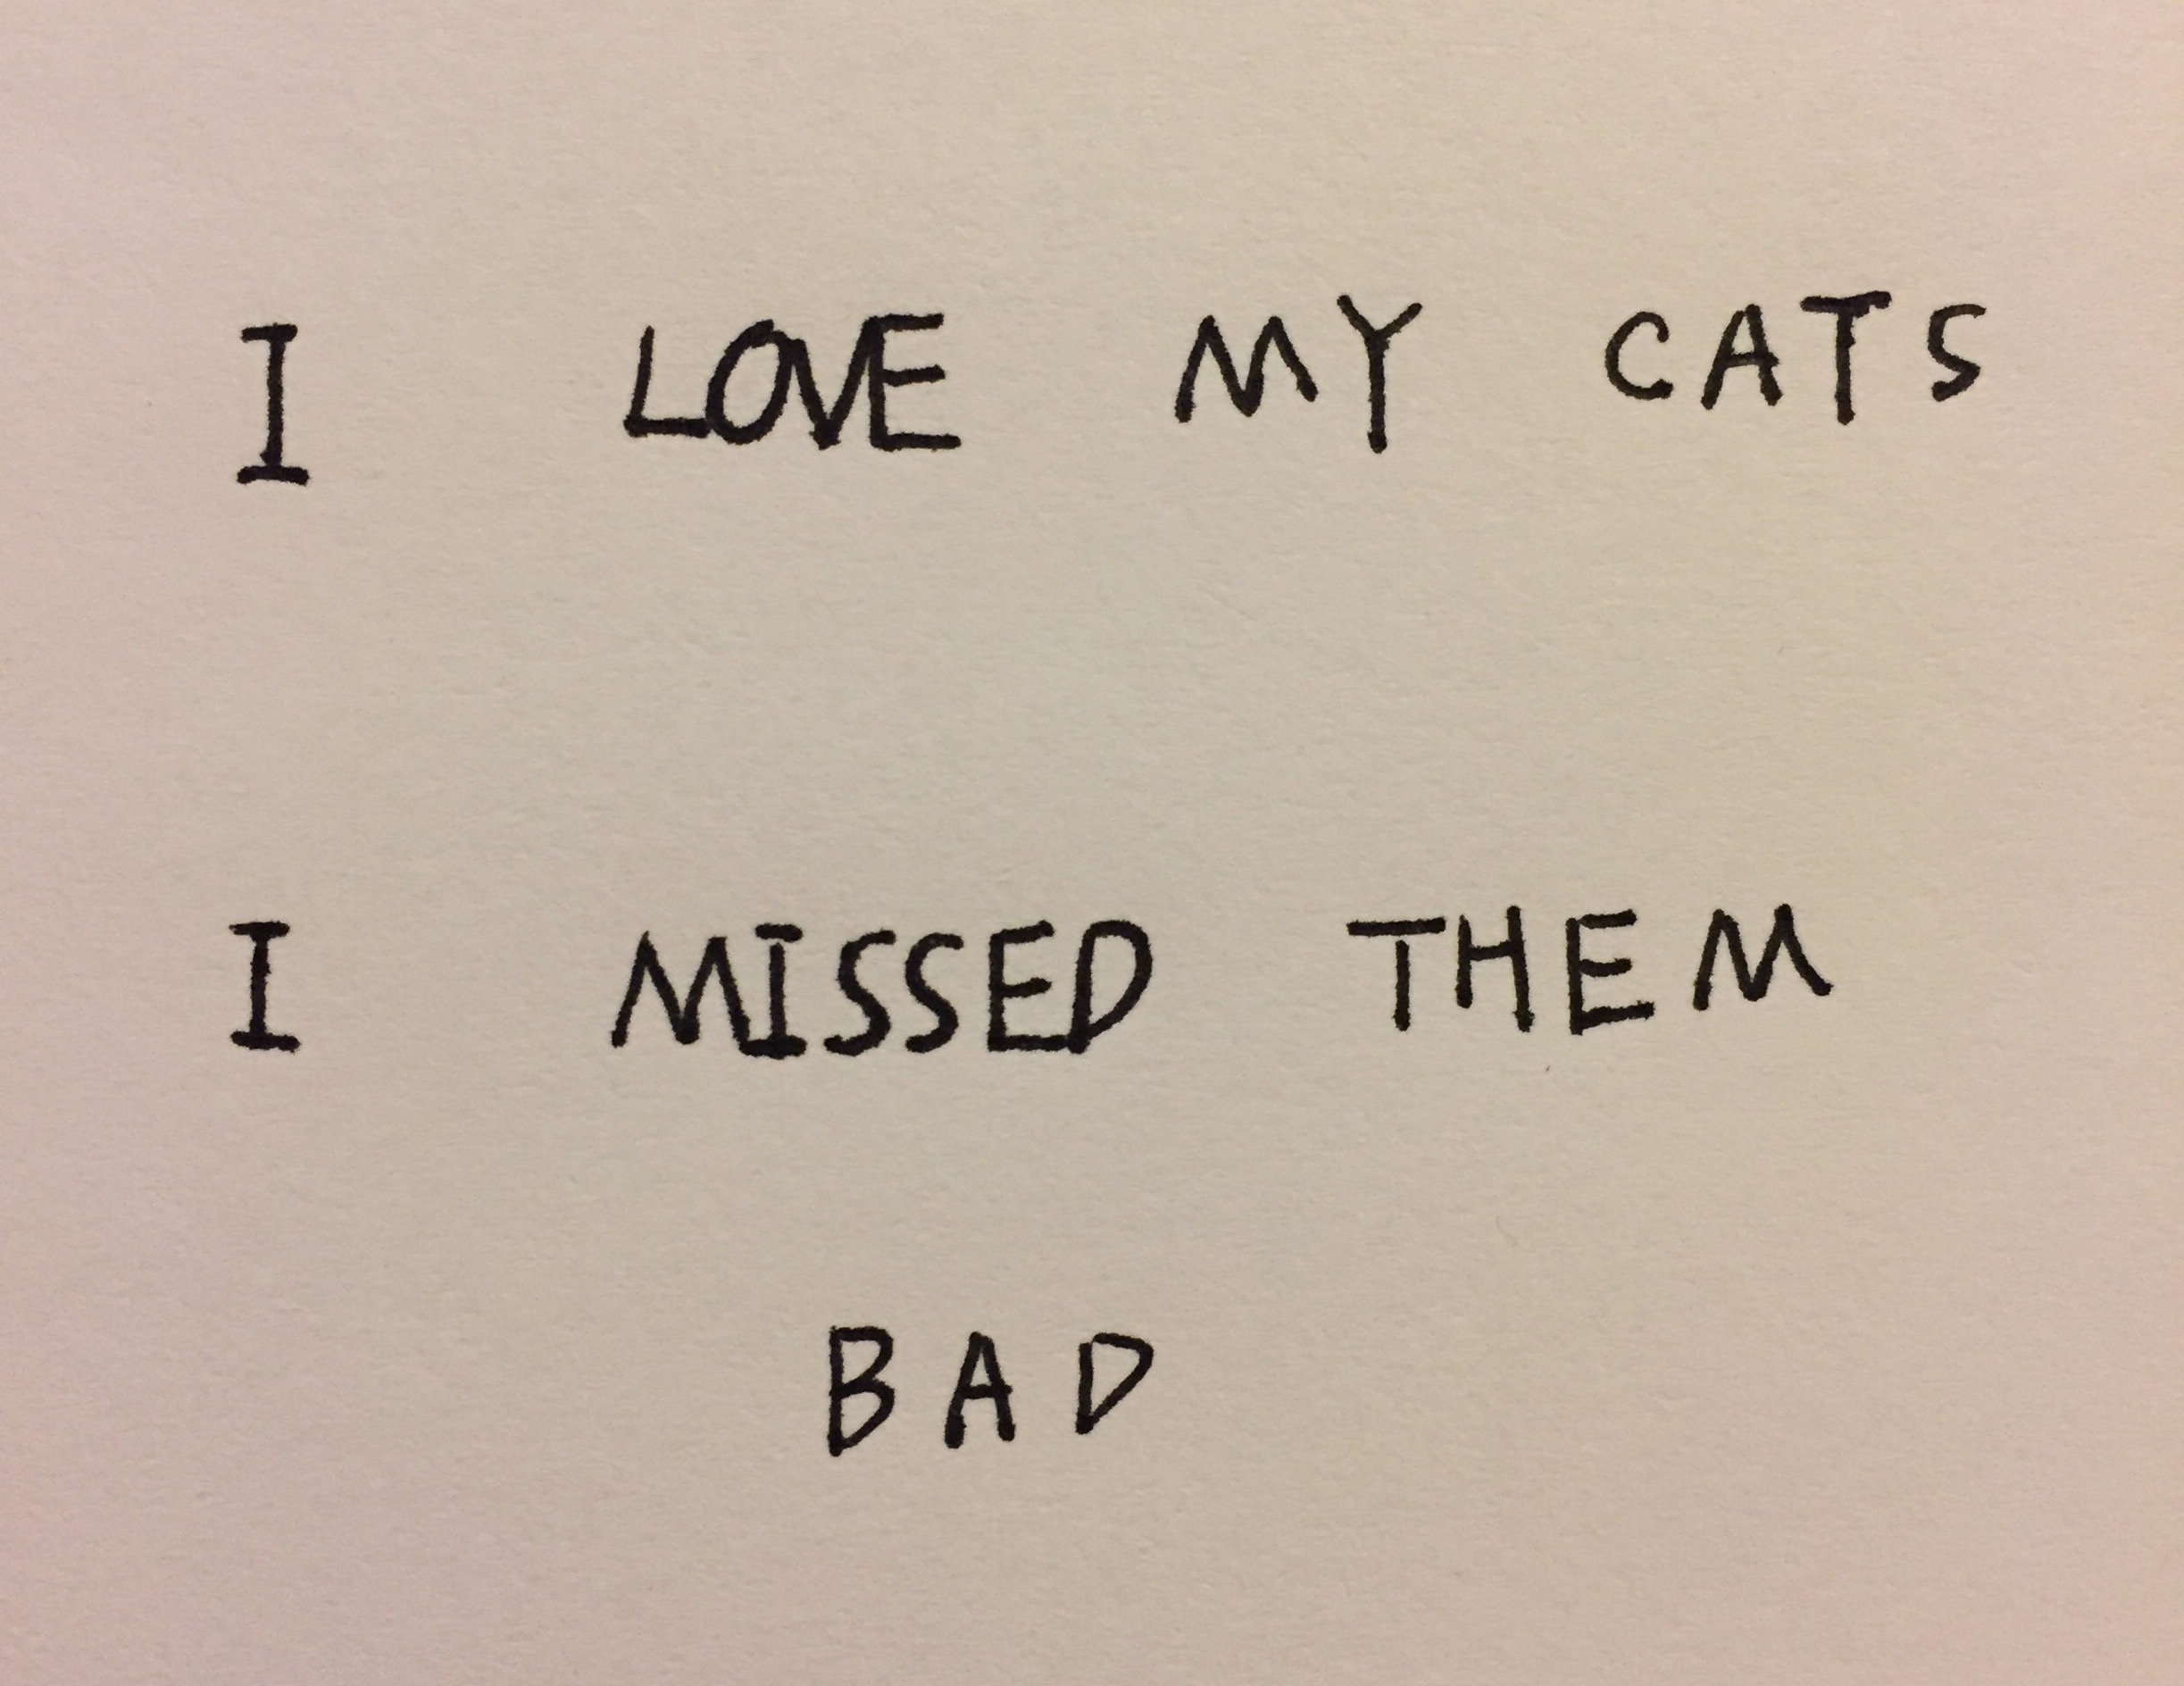 I LOVE MY CATS
I MISSED THEM
BAD